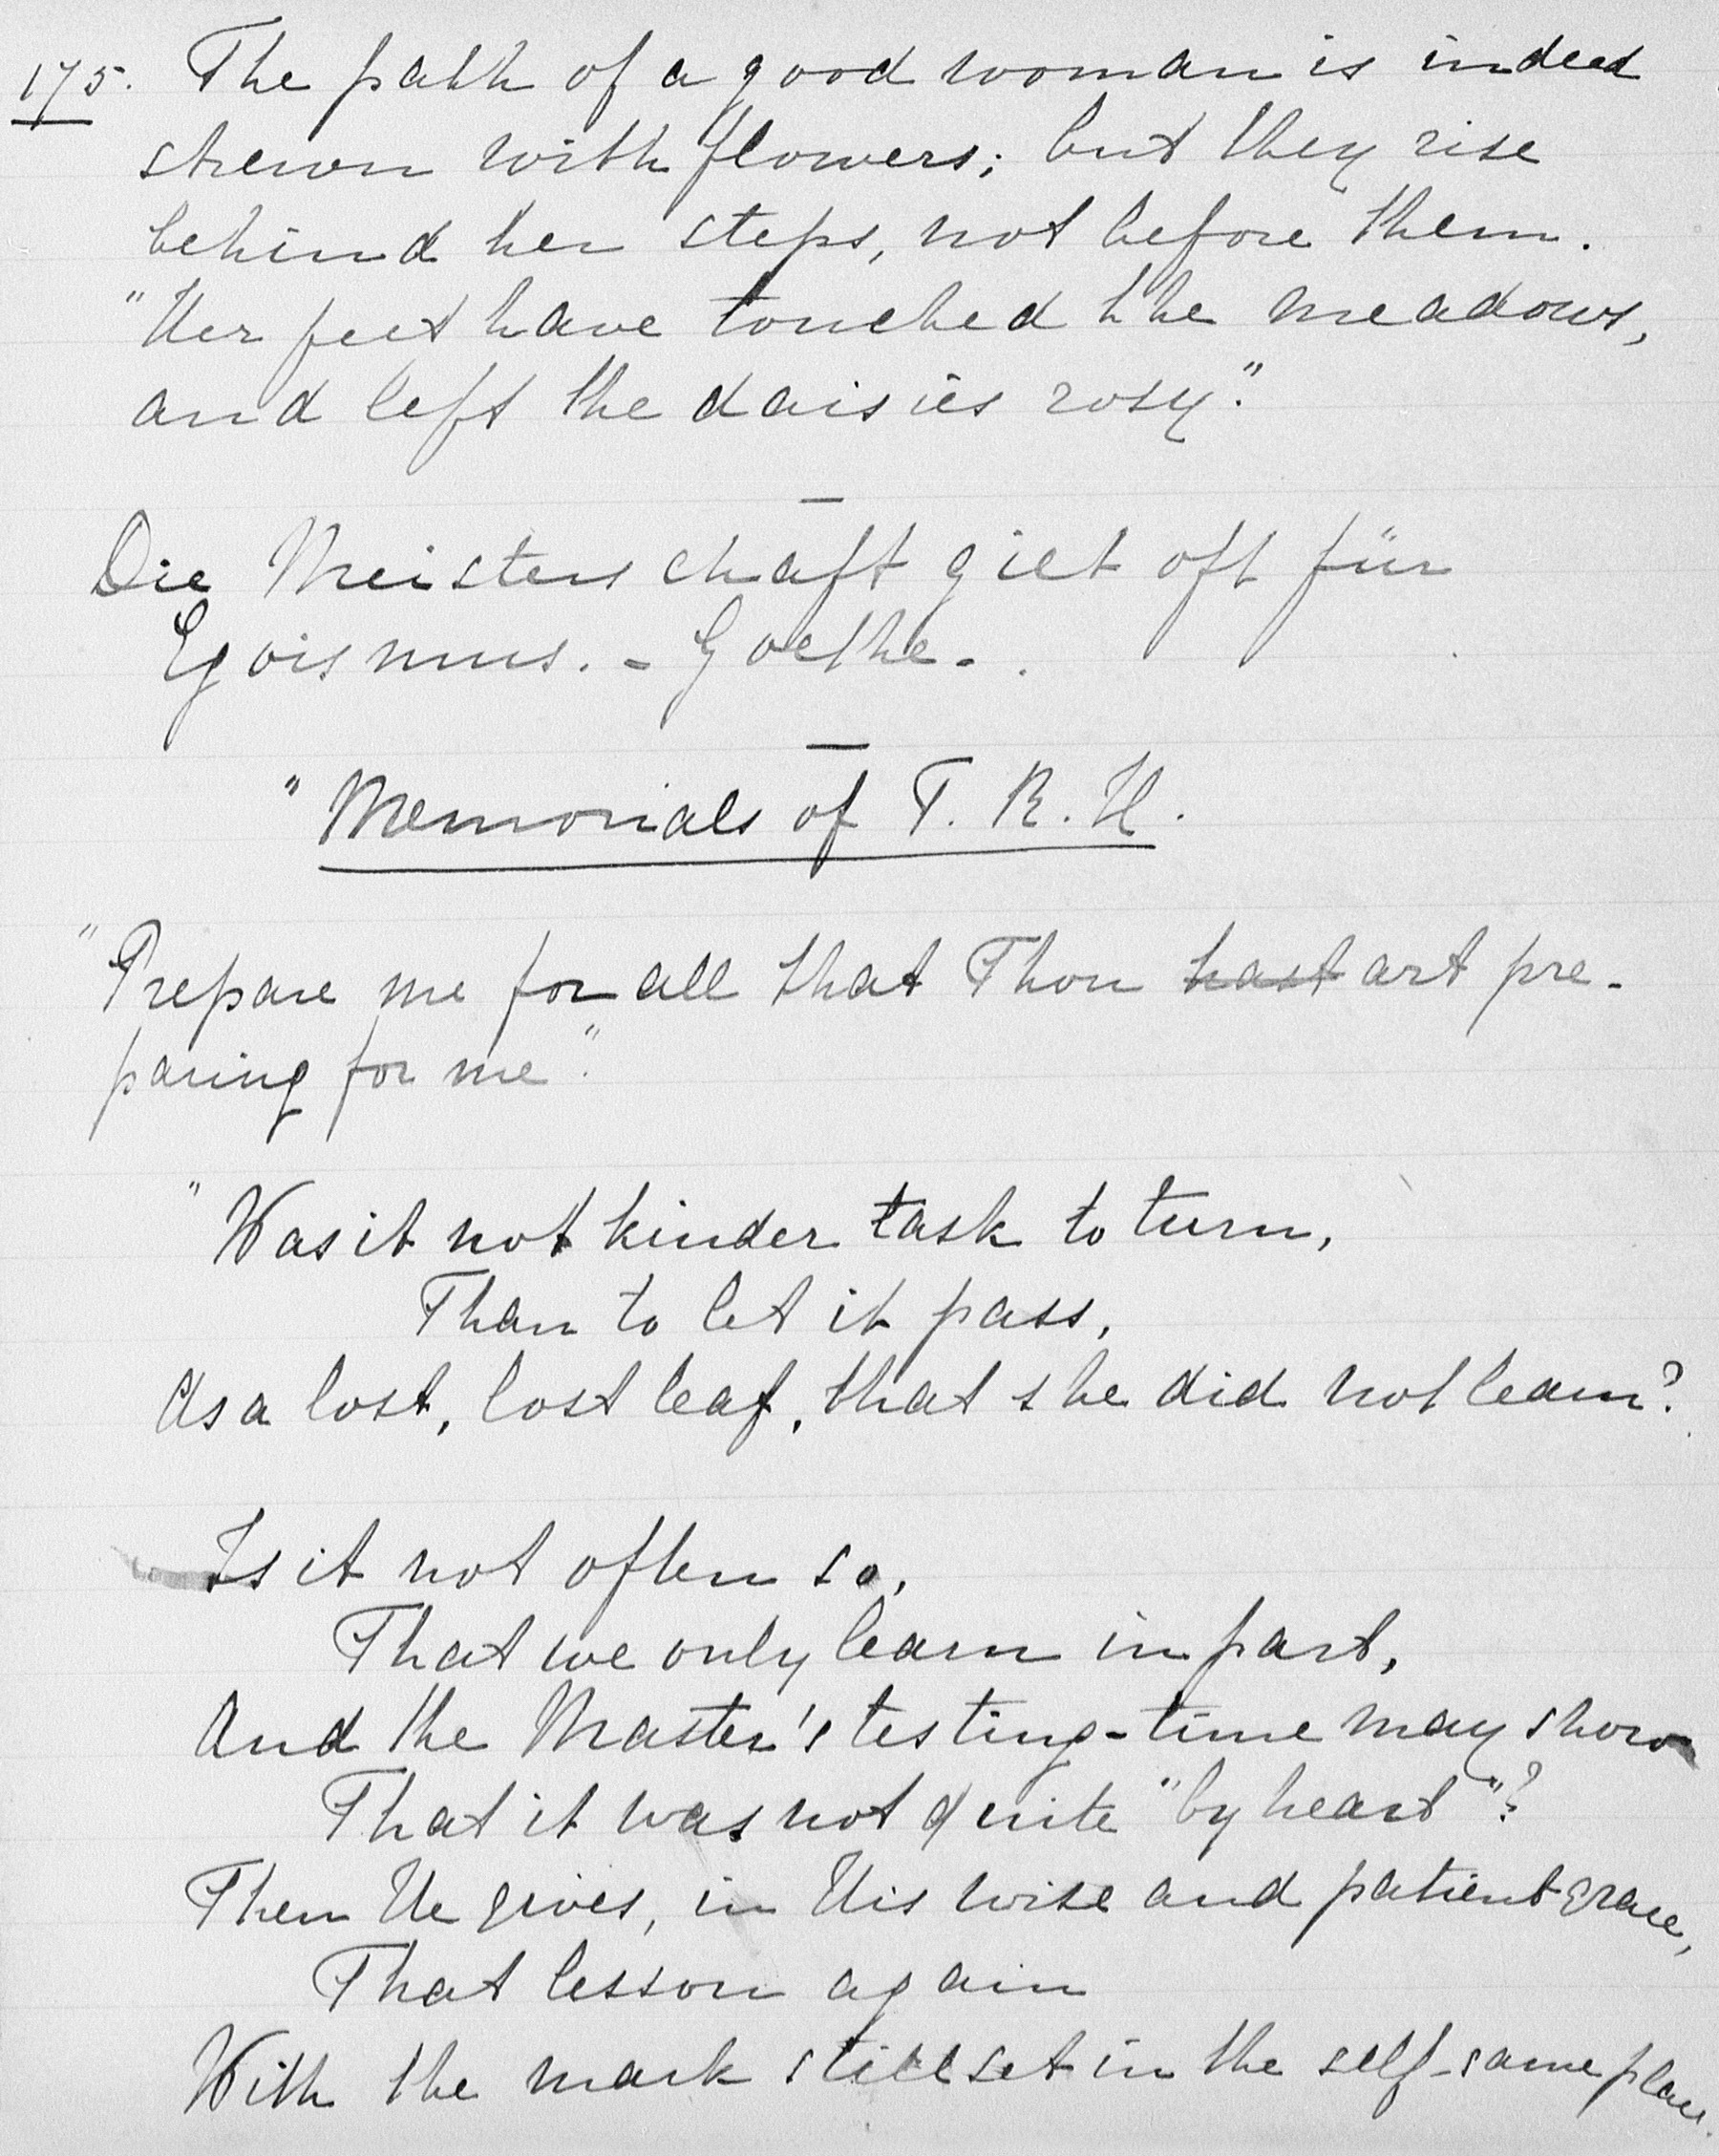 175. The path of a good woman is indeed
strewn with flowers; but they rise
behind her steps, not before them.
"Her feet have touched the meadows,
and left the daisies rosy."
Die Meisterschaft gilt oft für
Egoismus. - Goethe -.
"Memorials of F. R. H.
"Prepare me for all that Thou hast art pre-
paring for me."
"Was it not kinder task to turn,
Than to let it pass,
As a lost, lost leaf, that she did not learn?
Is it not often so,
That we only learn in part,
And the Master's testing-time may show
That it was not quite "by heart"?
Then He gives, in His wise and patient grace,
That lesson again
With the mark still set in the self-same place.